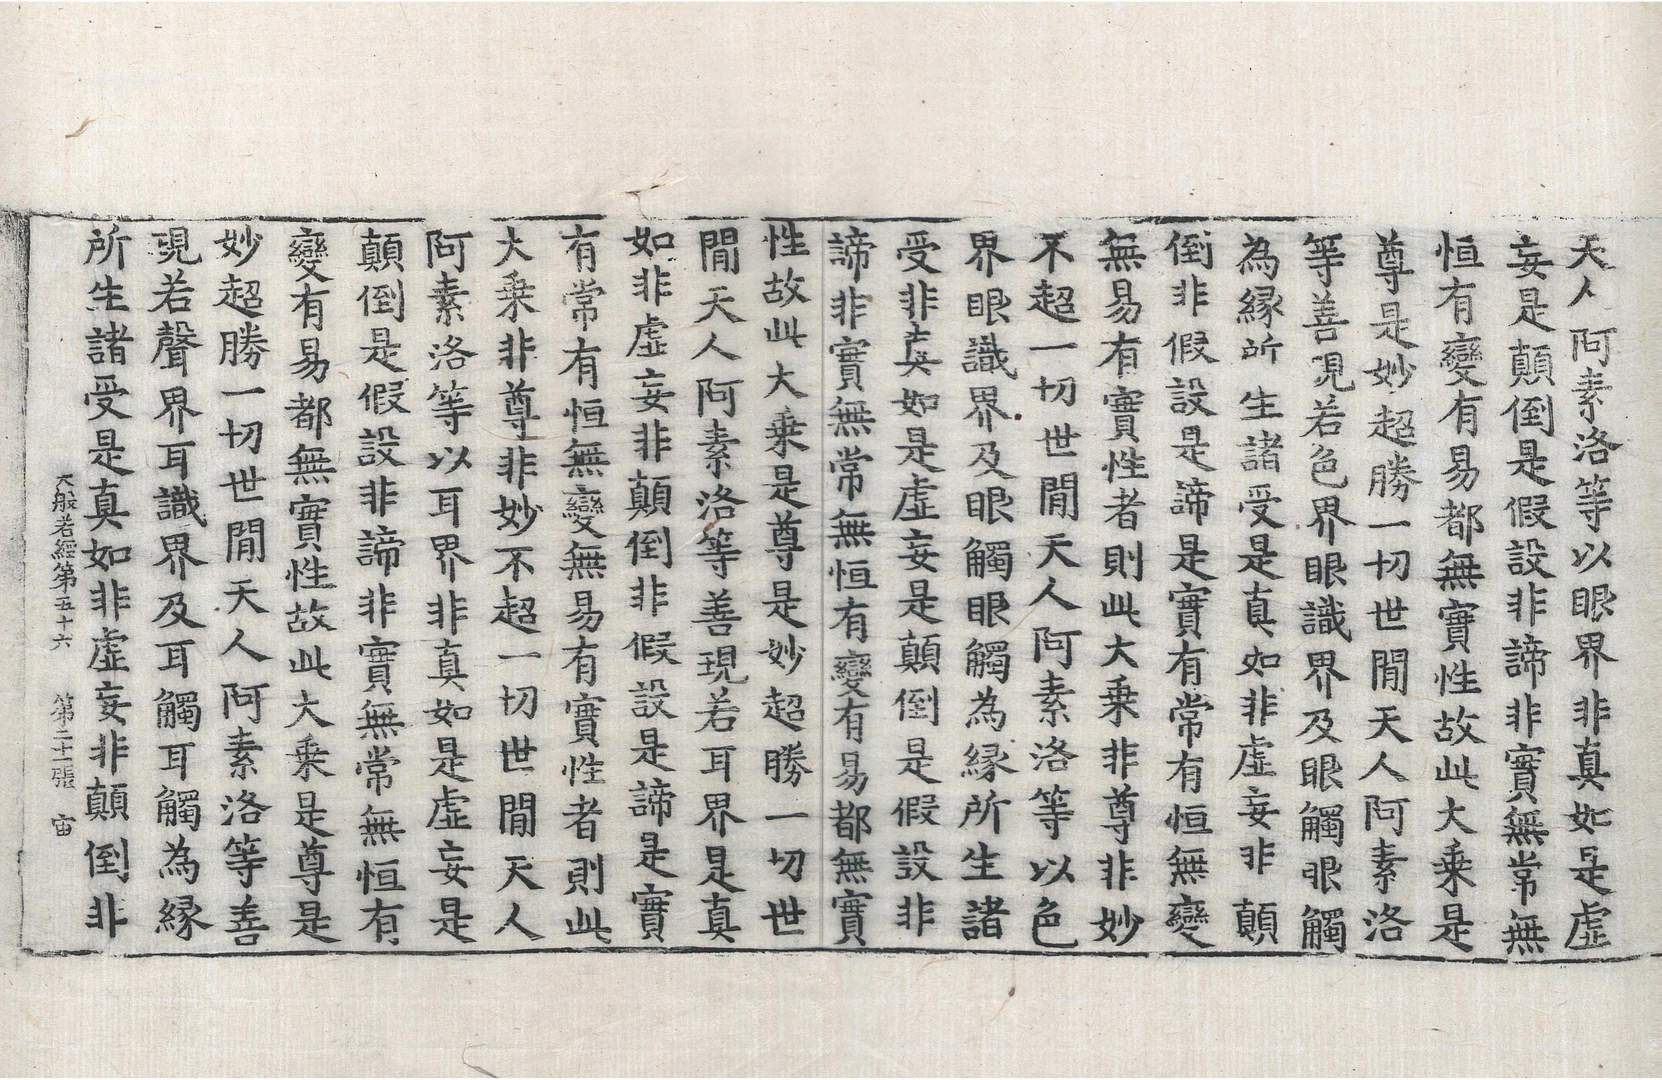 天人阿素洛等以眼界非真如是虛
妄是顛倒是假設非諦非實無常無
恒有變有易都無實性故此大乘是
尊是妙超勝一切世間天人阿素洛
等善現若色界眼識界及眼觸眼觸
為緣所生諸受是真如非虛妄非顛
倒非假設是諦是實有常有恒無變
無易有實性者則此大乘非尊非妙
不超一切世間天人阿素洛等以色
界眼識界及眼觸眼觸為緣所生諸
受非真如是虛妄是顛倒是假設非
諦非實無常無恒有變有易都無實
性故此大乘是尊是妙超勝一切世
間天人阿素洛等善現若耳界是真
如非虛妄非顛倒非假設是諦是實
有常有恒無變無易有實性者則此
大乘非尊非妙不超一切世間天人
阿素洛等以耳界非真如是虛妄是
顛倒是假設非諦非實無常無恒有
變有易都無實性故此大乘是尊是
妙超勝一切世間天人阿素洛等善
現若聲界耳識界及耳觸耳觸為緣
所生諸受是真如非虛妄非顛倒非
大般若經第五十六 第二十一張 宙